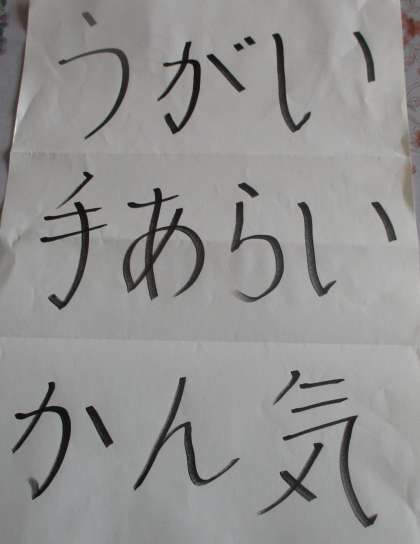 うがい
手あらい
かん気